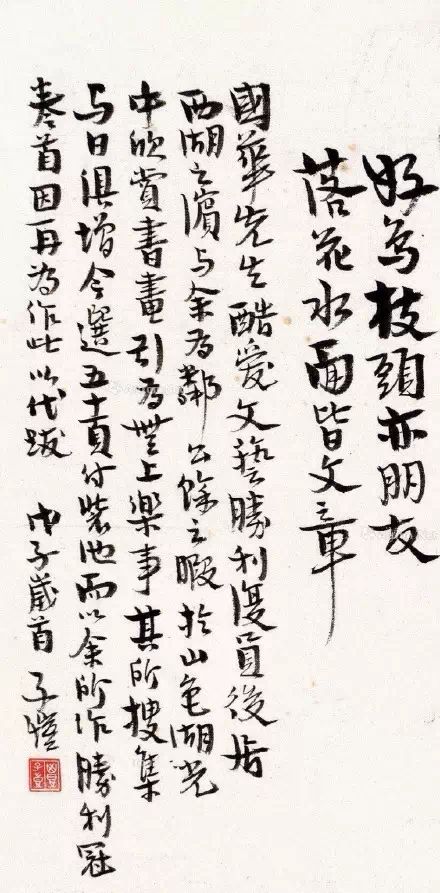 好鳥枝頭亦朋友
落花水面皆文章
國華先生酷愛文藝勝利復員後居
西湖之濱与余为鄰公餘之暇於山色湖光
中欣賞書畫引为無上樂事其所搜集
与日俱增今選五十頁付裝池而以余所作勝利冠
卷首因再为作此以代跋 戊子歲首 子愷